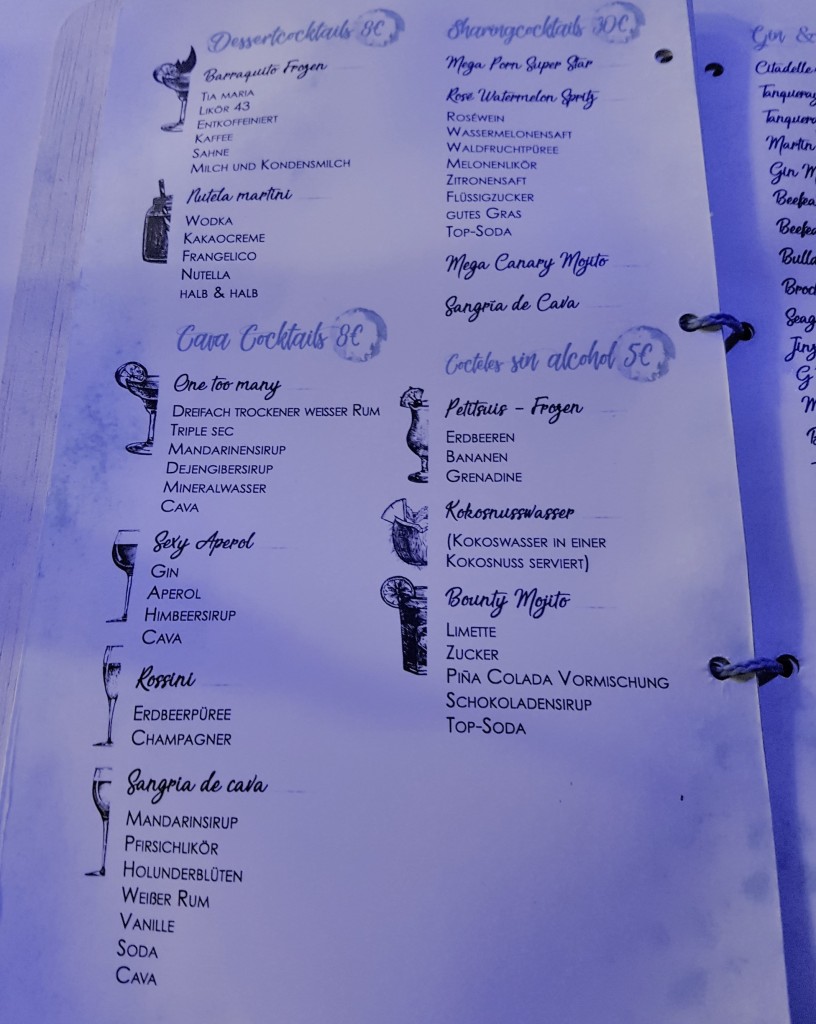 Dessertcocktails 8€
Barraquito Frozen
Tia maria
Likör 43
Entkoffeiniert
Kaffee
Sahne
Milch und Kondensmilch
Nutela martini
Wodka
Kakaocreme
Frangelico
Nutella
halb & halb
Cava Cocktails 8€
One too many
Dreifach trockener weisser Rum
Triple sec
Mandarinensirup
Dejengibersirup
Mineralwasser
Cava
Sexy Aperol
Gin
Aperol
Himbeersirup
Cava
Rossini
Erdbeerpüree
Champagner
Sangria de cava
Mandarinsirup
Pfirsichlikör
Holunderblüten
Weißer Rum
Vanille
Soda
Cava
Sharingcocktails 30€
Mega Porn Super Star
Rosé Watermelon Spritz
Roséwein
Wassermelonensaft
Waldfruchtpüree
Melonenlikör
Zitronensaft
Flüssigzucker
gutes Gras
Top-Soda
Mega Canary Mojito
Sangria de Cava
Cocteles sin alcohol 5€
Petitsuis - Frozen
Erdbeeren
Bananen
Grenadine
Kokosnusswasser
(Kokoswasser in einer
Kokosnuss serviert)
Bounty Mojito
Limette
Zucker
Piña Colada Vormischung
Schokoladensirup
Top-Soda
Gin &
Citadelle
Tanqueray
Tanquera
Martin
Gin M
Beefea
Beefea
Bulla
Broc
Seag
Jin
G
M